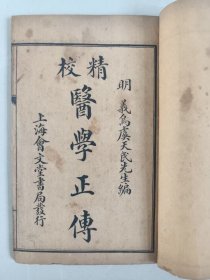 明義烏虞天民先生編
精校
醫學正傳
上海會文堂書局發行